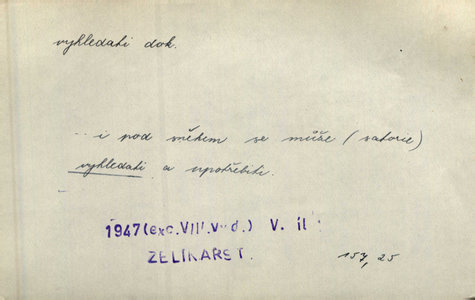 vyhledati dok.
... i pod sněhem se může (satorie)
vyhledati a upotřebiti.
1947 (exc. VIII. V. il
ZELIKARST.
157, 25